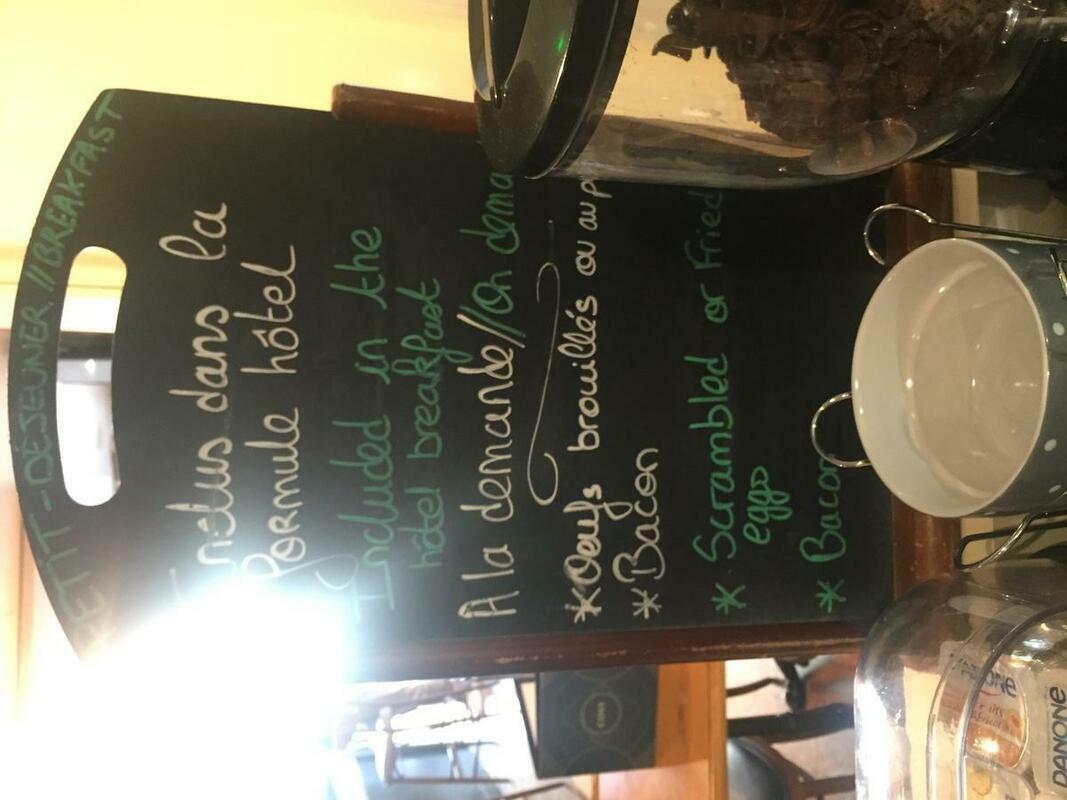 PETIT-DÉJEUNER // BREAKFAST
Inclus dans la
formule hôtel
Included in the
hôtel breakfast
A la demande//On dema
*Oeufs brouillés ou au p
*Bacon
* Scrambled or Fried
eggs
* Bacon
DANONE
DANONE